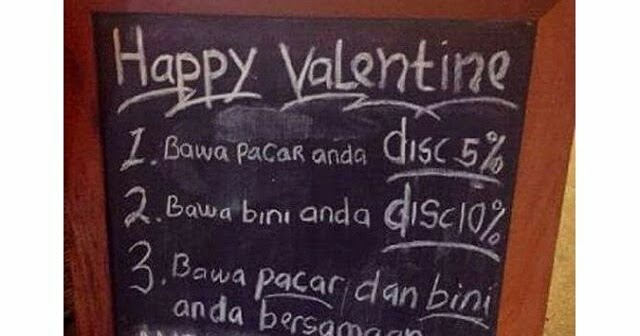 Happy Valentine
1. Bawa pacar anda disc 5%
2. Bawa bini anda disc 10%
3. Bawa pacar dan bini
anda bersamaan